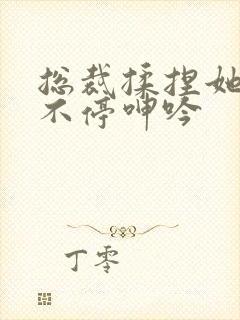 总裁揉捏她
不停呻吟
丁零